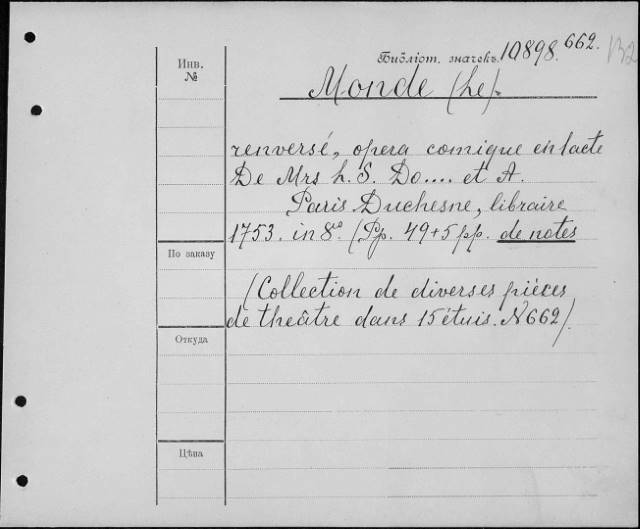 Инв.
№
Библіот. значекъ. 10898. 662. 132
Monde (Le).
renversé, opera comique en 1 acte
De Mrs L. S. Do.... et A.
Paris Duchesne, libraire
1753. in 8º. (Pp. 49+5 pp. de notes
По заказу
(Collection de diverses pièces
de theâtre dans 15 étuis. N 662).
Откуда
Цѣна